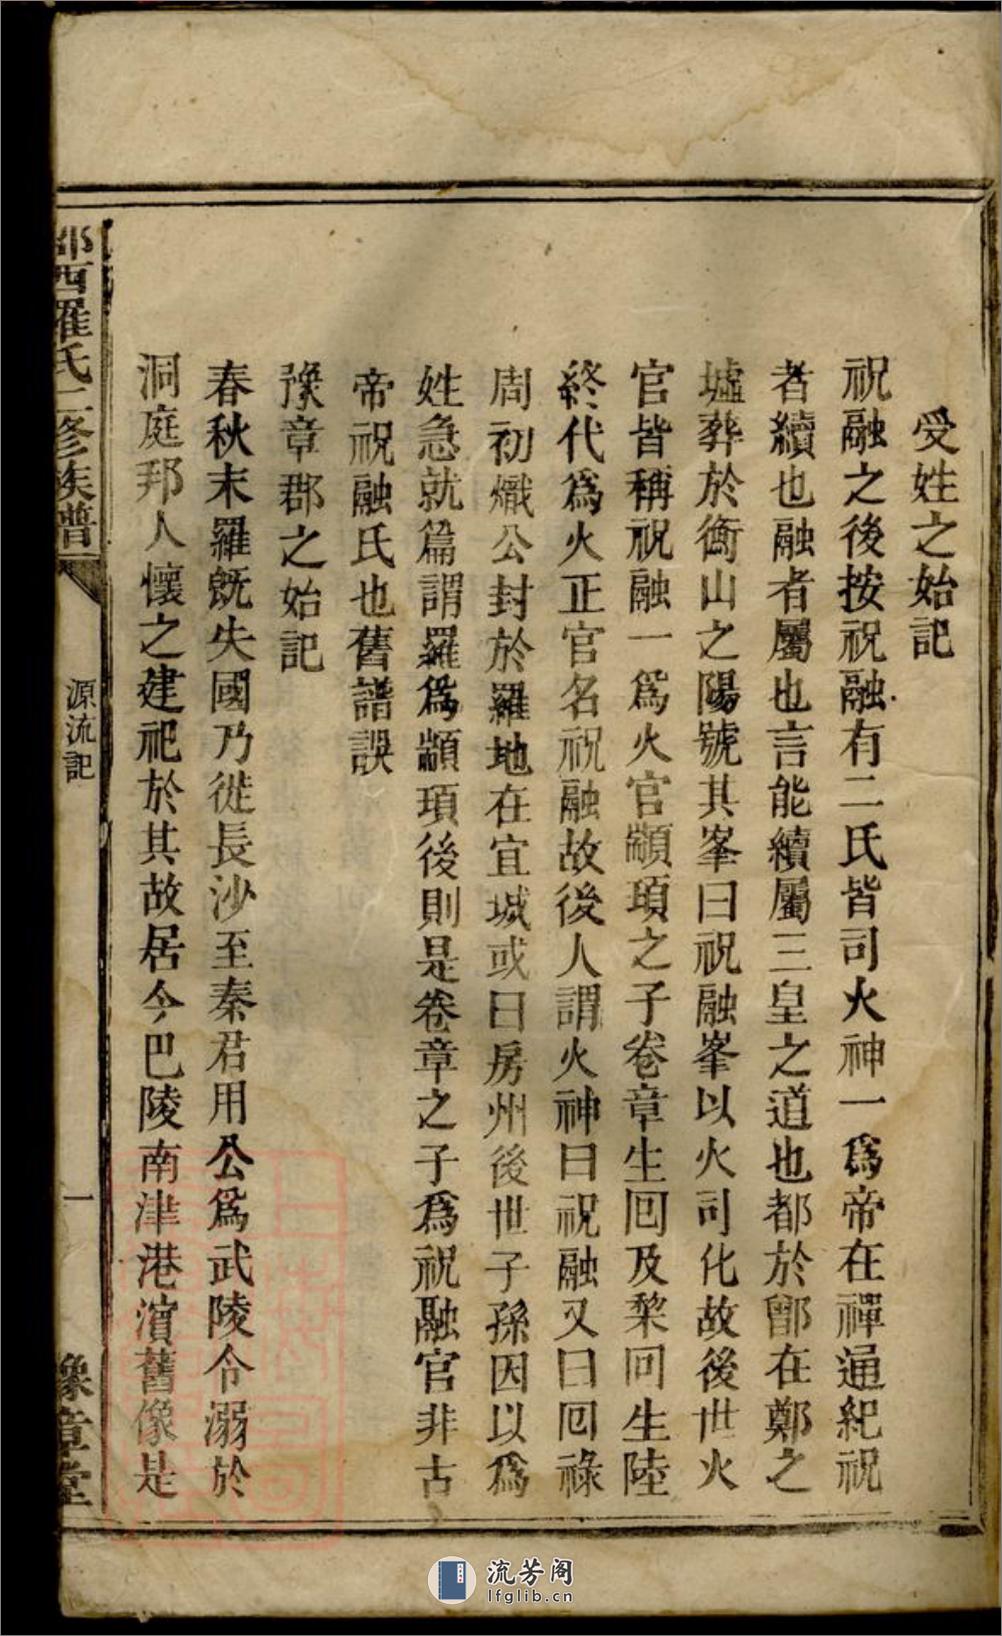 受姓之始記
祝融之後按祝融有二氏皆司火神一爲帝在禪通紀祝
者續也融者屬也言能續屬三皇之道也都於鄶在鄭之
墟葬於衡山之陽號其峯曰祝融峯以火司化故後世火
官皆稱祝融一爲火官顓頊之子卷章生回及棃回生陸
終代爲火正官名祝融故後人謂火神曰祝融又曰回祿
周初熾公封於羅地在宜城或曰房州後世子孫因以爲
姓急就篇謂羅爲顓頊後則是卷章之子爲祝融官非古
帝祝融氏也舊譜誤
豫章郡之始記
春秋末羅旣失國乃徙長沙至秦君用公爲武陵令溺於
洞庭邦人懷之建祀於其故居今巴陵南津港濱舊像是
邵西羅氏二修族譜
源流記
一
豫章堂
流芳阁
lfglib.cn